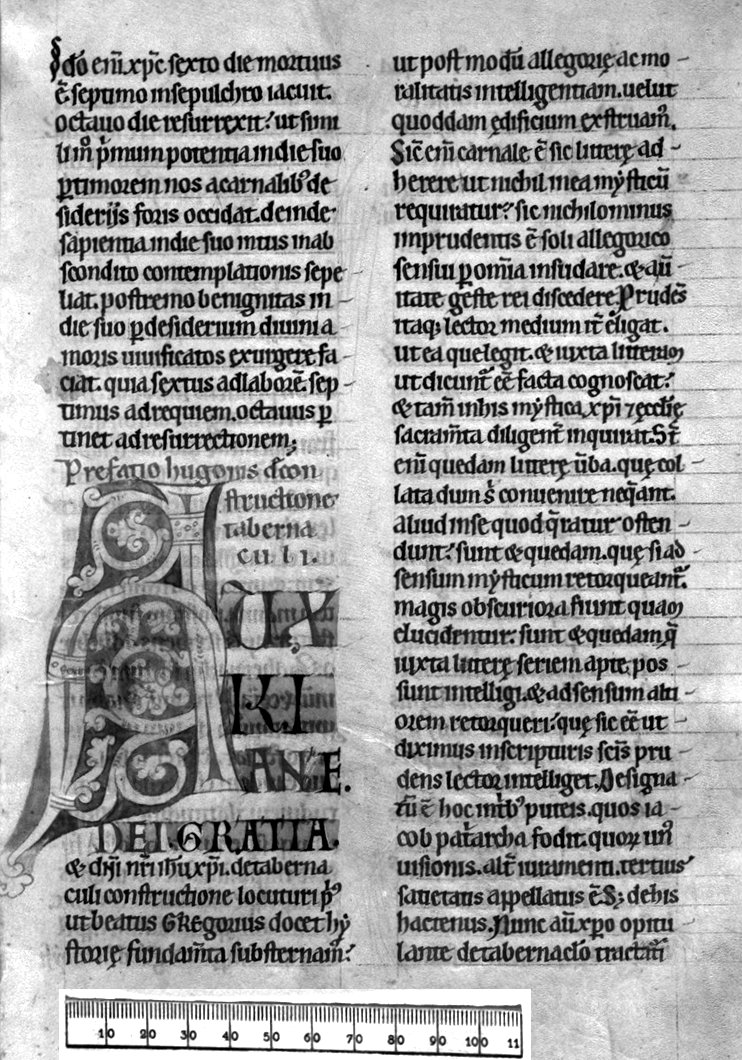 § dō em̄ xp̄c sexto die mortuus
ē. septimo in sepulchro iacuit.
octauo die resurrexit: ut simi
li m̄ p̄mum potentia in die suo
ꝑ timorem nos a carnalibꝰ de
siderijs foris occidat. deinde
sapientia in die suo intus in ab
scondito contemplationis sepe
liat. postremo benignitas in
die suo ꝑ desiderium diuini a
moris uiuificatos exurgere fa
ciat. quia sextus ad laborē. sep
timus ad requiem. octauus ꝑ
tinet ad resurrectionem;
Prefatio hugonis de con
structione
taberna
culi.
DEI. GRATIA.
& dn̄i nr̄i ih̄u xp̄i. de taberna
culi constructione locuturi pꝰ
ut beatus GREgorius docet hy
storię fundam̄ta substernam̄:
ut post modū allegorię ac mo
ralitatis intelligentiam. uelut
quoddam ędificium exstruam̄.
Sic̄ em̄ carnale ē sic littere ad
herere ut nichil mea mysticū
requiratur: sic nichilominus
inprudentis ē soli allegorico
sensui ꝑ om̄ia insudare. & aū
itate geste rei discedere. Prudēs
itaq; lector medium it̄ eligat.
ut ea que legit. & iuxta litteram
ut dicunt̄ eē facta cognoscat:
& tam̄ in his mystica xp̄i ⁊ ecclīę
sacram̄ta diligent̄ inquirat. St̄
em̄ quedam litterę ūba. quę col
lata dum s̄ conuenire neq̄ant.
aliud in se quod q̄ratur osten
dunt: sunt & quedam. quę si ad
sensum mysticum retorqueant̄.
magis obscuriora fiunt quam
elucidentur: sunt & quedam q̄
iuxta litterę seriem apte pos
sunt intelligi. & ad sensum alti
orem retorqueri: quę sic eē ut
diximus in scripturis scīs pru
dens lector intelliget. Designa
tū ē hoc in t̄bꝰ puteis. quos ia
cob pat̄archa fodit. quoꝝ unꝰ
uisionis. alt̄ iuramenti. tertius
satietatis appellatus ē. S; de his
hactenus. Nunc aū xp̄o opitu
lante de tabernacl̄o tractatī
10 20 30 40 50 60 70 80 90 100 11